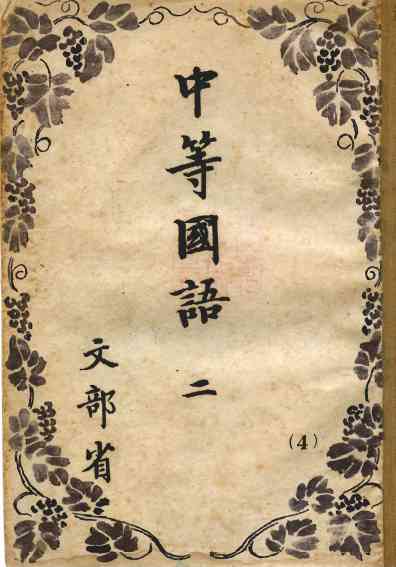 中等國語 二
(4)
文部省